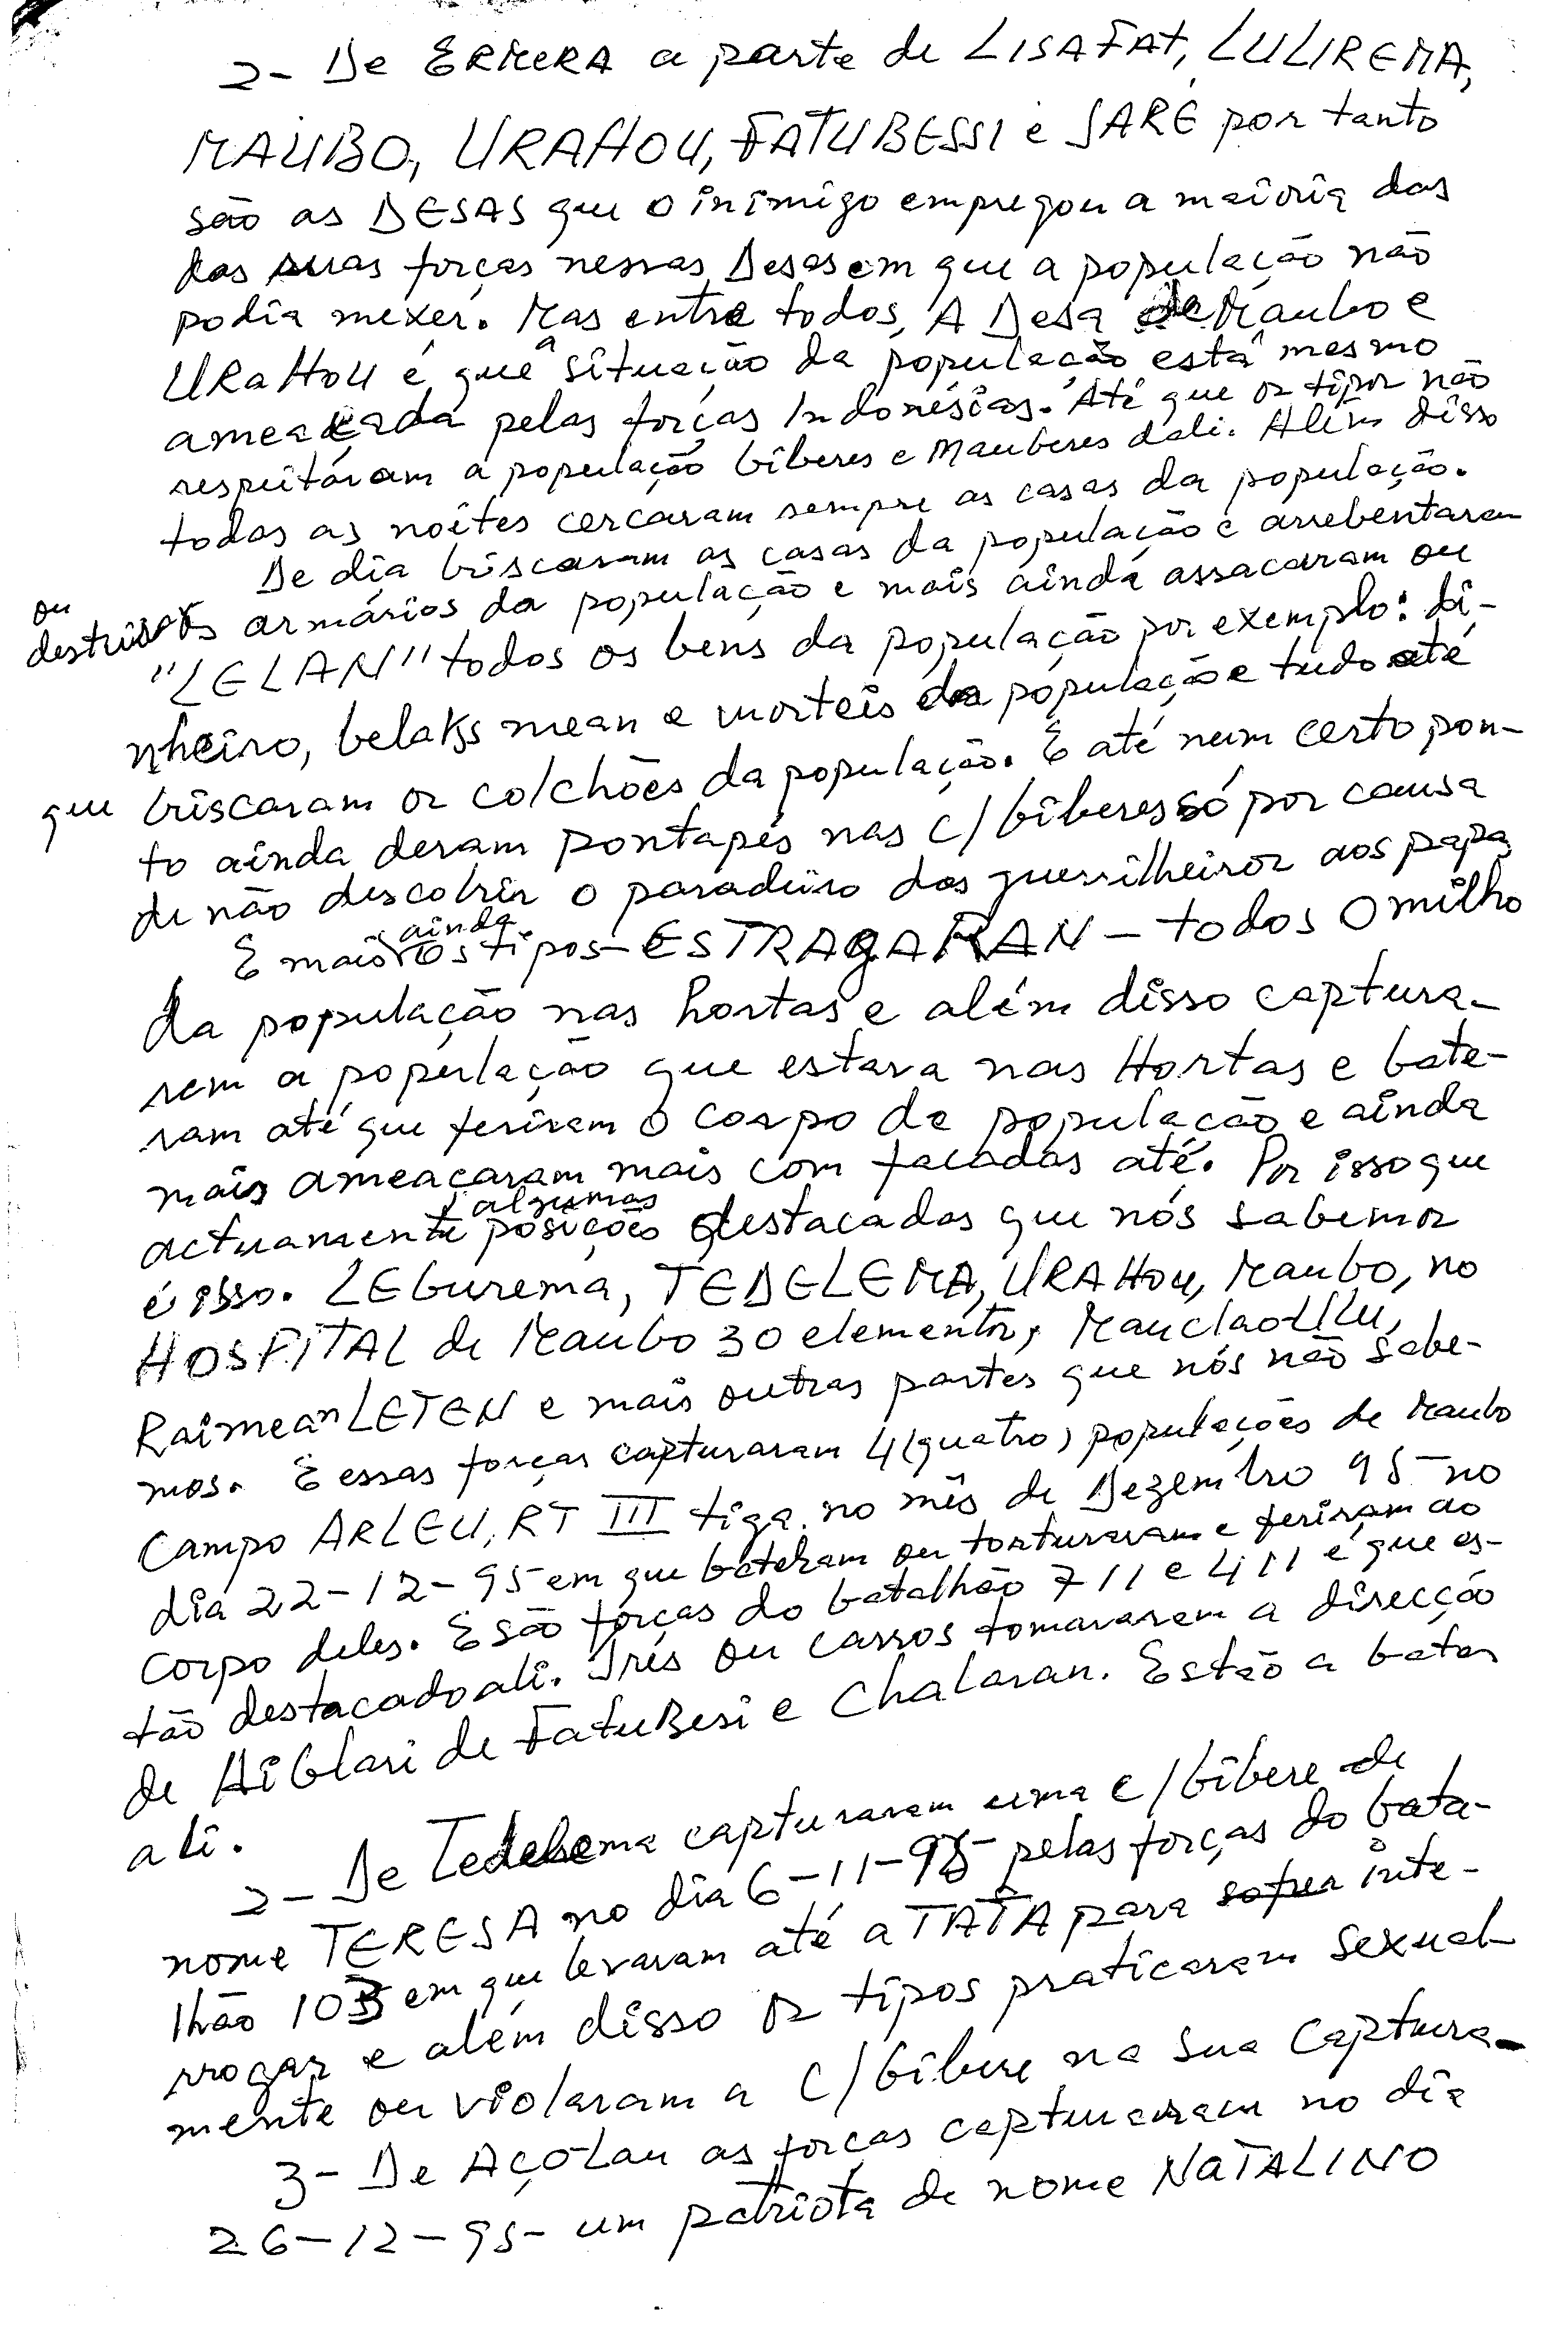 2- De ERMERA a parte de LISAFAT, LULIREMA,
MAÚBO, URAHOU, FATUBESSI e SARÉ por tanto
são as DESAS que o inimigo empregou a maioria das
das suas forças nessas Desas em que a população não
podia mexer. Mas entre todos, A Desa de Maubo e
URAHOU é que a situação da população está mesmo
ameaçada pelas forças Indonésias. Até que os tipos não
respeitáram a população biberes e Mauberes dali. Além disso
todas as noites cercaram sempre as casas da população.
De dia briscaram as casas da população e arrebentaram
ou destruir os armários da população e mais ainda assacaram ou
"LELAN" todos os bens da população por exemplo: di-
nheiro, belaks mean e morteis da população e tudo até
que briscaram os colchões da população. E até num certo pon-
to ainda deram pontapés nas c/biberes só por causa
de não descobrir o paradeiro dos guerrilheiros aos papas
E mais ainda os tipos - ESTRAGARAN - todos o milho
da população nas hortas e além disso captura-
rem a população que estava nas Hortas e bate-
ram até que feriram o corpo da população e ainda
mais ameaçaram mais com facadas até. Por isso que
actuamente algumas posições destacadas que nós sabemos
é isso. LEburema, TEDELEMA, URAHOU, Maubo, no
HOSPITAL de Maubo 30 elementos, Mauclao-Ulu,
Raimean LETEN e mais outras partes que nós não sabe-
mos. E essas forças capturaram 4 (quatro) populações de Maubo
Campo ARLEU, RT III tiga no mês de Dezembro 95 no
dia 22-12-95 em que bateram ou torturaram e feriram ao
corpo deles. E são forças do batalhão 711 e 411 é que es-
tão destacado ali. Três ou carros tomaram a direcção
de Aiblari de FatuBesi e Chalaran. Estão a bater
ali.
2- De Tedelema capturaram uma c/bibere de
nome TERESA no dia 6-11-95 pelas forças do bata-
lhão 103 em que levaram até a TATA para sofrer inte-
rrogar e além disso os tipos praticaram sexual-
mente ou violaram a c/bibere na sua captura-
3- De Açolau as forças capturaram no dia
26-12-95- um patriota de nome NATALINO